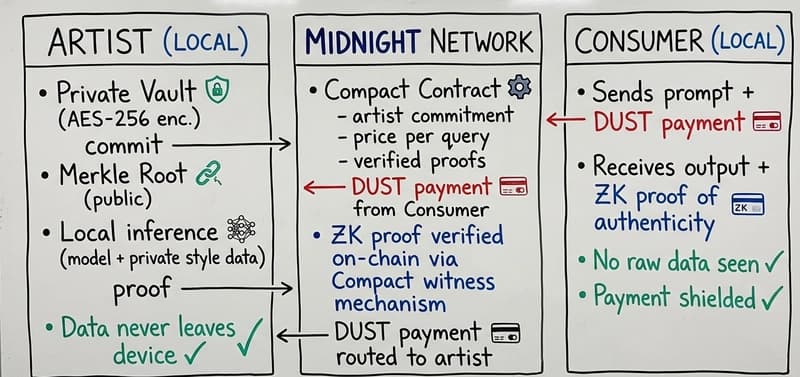 ARTIST (LOCAL)
• Private Vault
(AES-256 enc.)
commit
• Merkle Root
(public)
• Local inference
(model + private style data)
proof
• Data never leaves
device ✓
MIDNIGHT NETWORK
• Compact Contract
- artist commitment
- price per query
- verified proofs
DUST payment
from Consumer
• ZK proof verified
on-chain via
Compact witness
mechanism
DUST payment
routed to artist
CONSUMER (LOCAL)
• Sends prompt +
DUST payment
• Receives output +
ZK proof of
authenticity
ZK
• No raw data seen ✓
• Payment shielded ✓